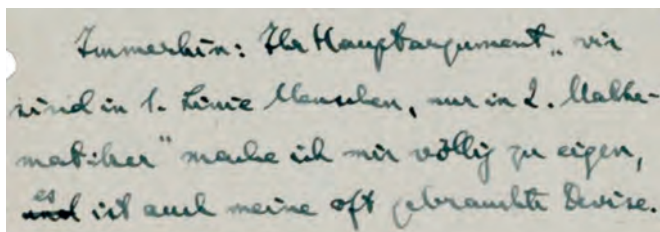 Immerhin: Ihr Hauptargument „wir
sind in 1. Linie Menschen, nur in 2. Mathe-
matiker" mache ich mir völlig zu eigen,
es ist auch meine oft gebrauchte Devise.